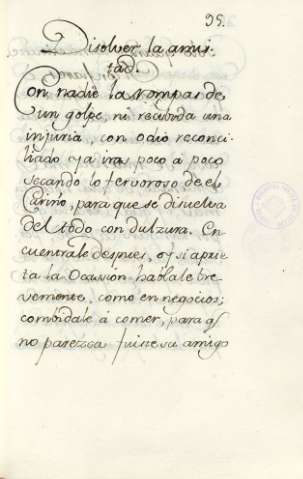 95.
Disolver la amis
tad.
Con nadie la rompas de
un golpe, ni recivida una
injuria, con odio reconci
liado ya iras poco à poco
secando lo fervoroso de el
Cariño, para que se disuelva
del todo con dulzura. En
cuentrale despues, y si aprie
ta la Ocasion hablale bre
vemente, como en negocios;
combidale à comer, para q
no parezca fuiste su amigo